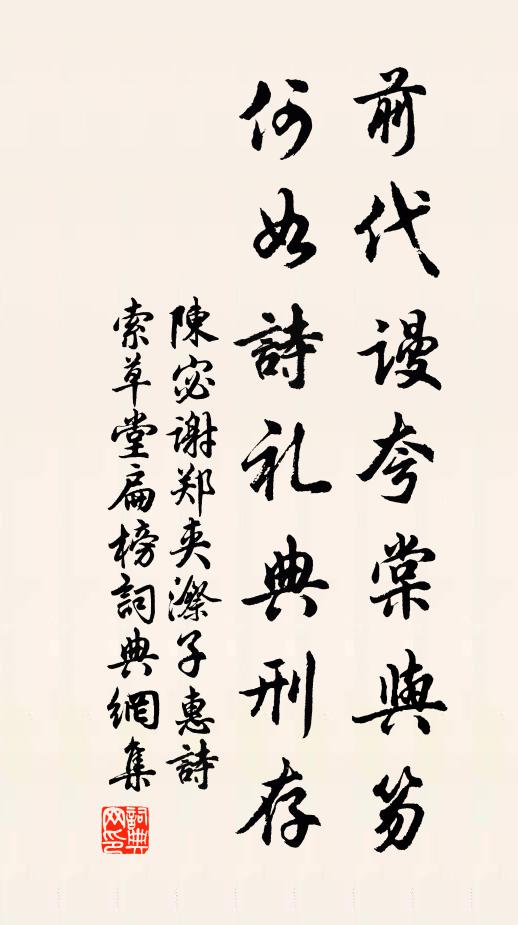 前代谩夸棠與笏
何如詩礼典刑存
陳宓谢郑夹漈子惠詩
索草堂扁榜詞典網集
詞典網印